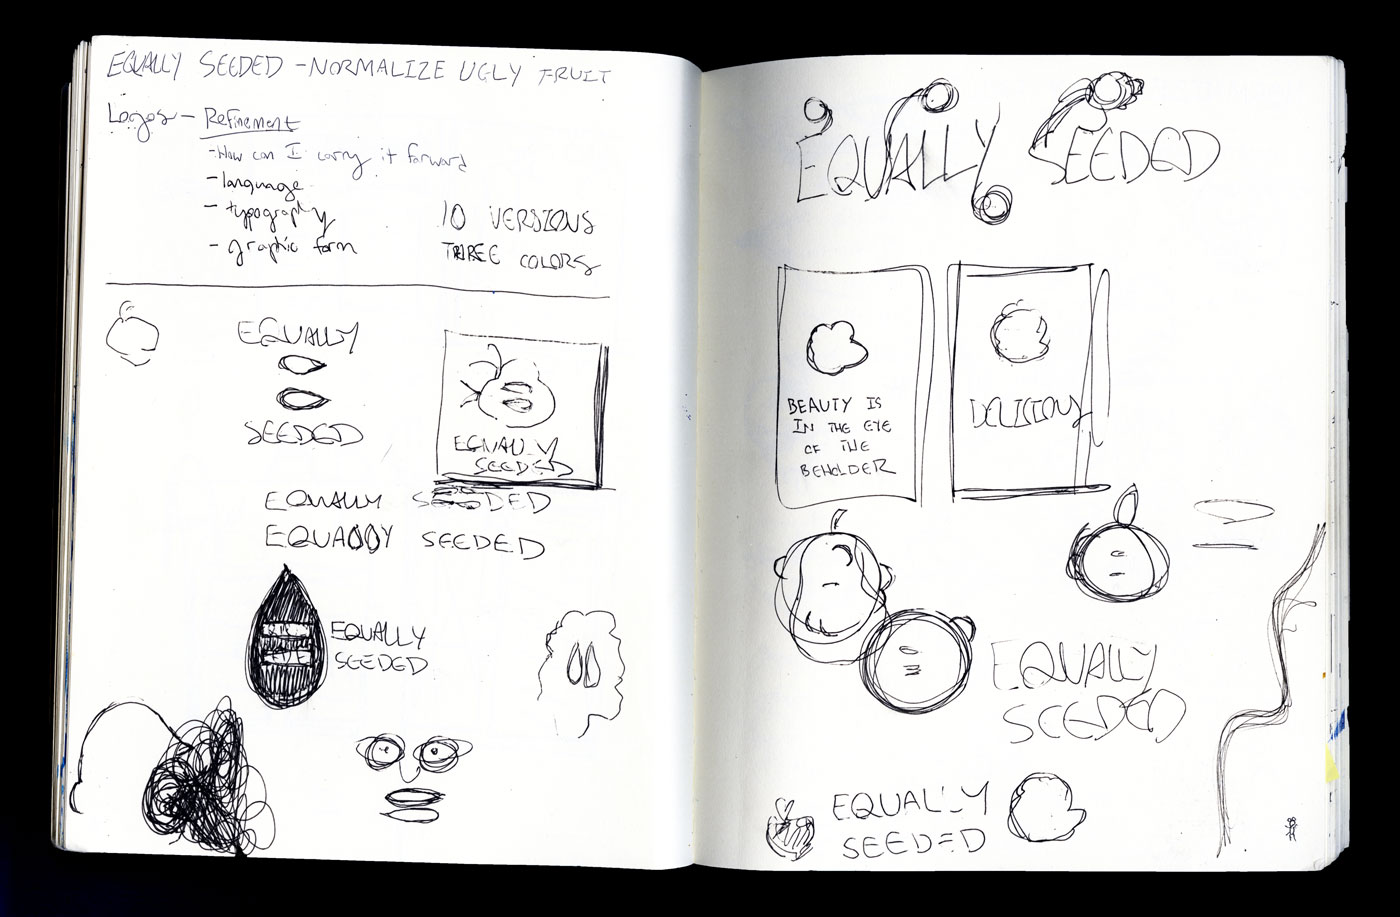 EQUALLY SEEDED - NORMALIZE UGLY FRUIT
Logos - Refinement
- How can I carry it forward
- language
- typography
- graphic form
10 VERSIONS
THREE COLORS
EQUALLY
SEEDED
EQUALLY
SEEDED
EQUALLY SEEDED
EQUALLY SEEDED
EQUALLY
SEEDED
EQUALLY SEEDED
BEAUTY IS
IN THE EYE
OF THE
BEHOLDER
DELICIOUS
EQUALLY
SEEDED
EQUALLY
SEEDED